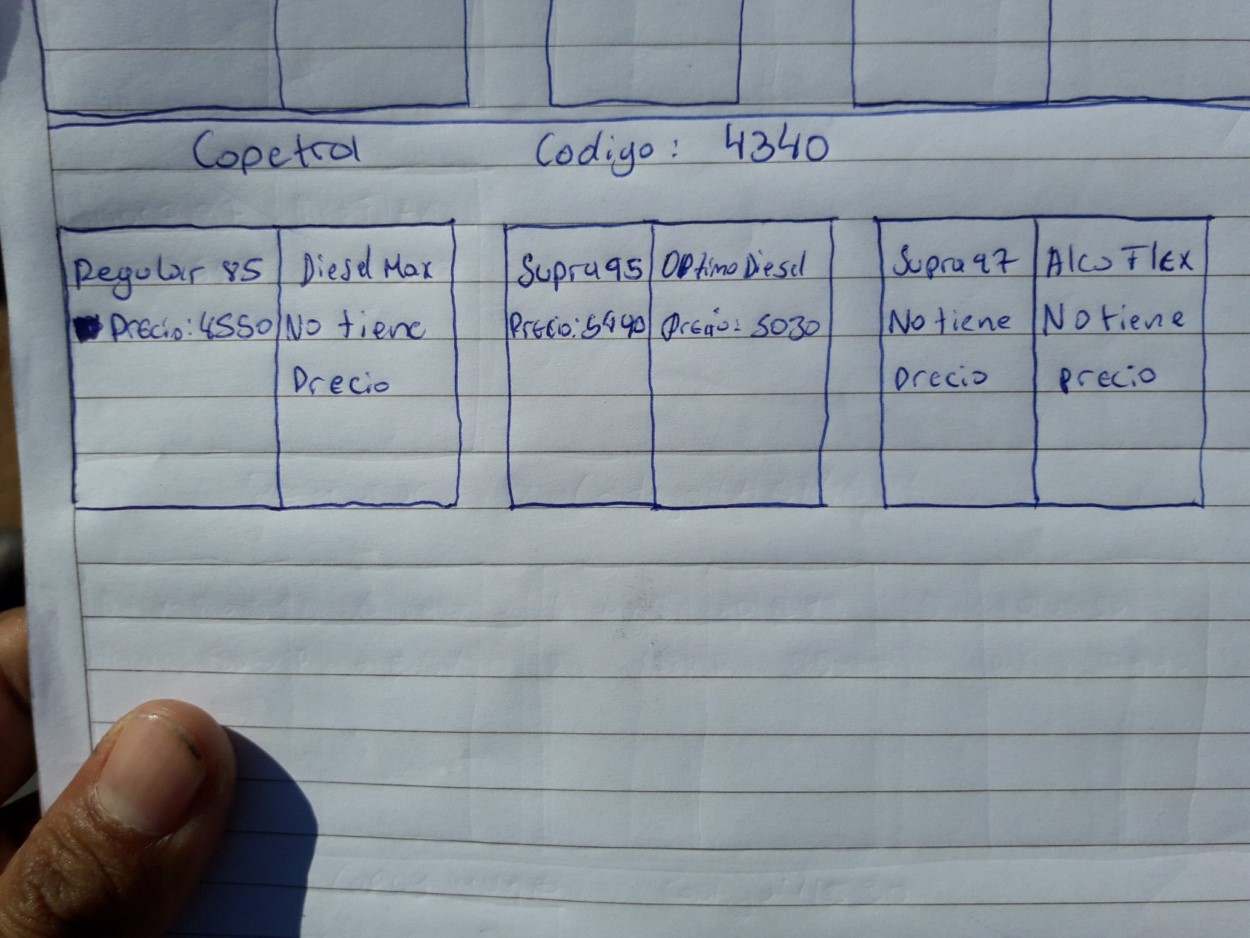 Copetrol Codigo: 4340
Regular 85 Diesel Max Supra 95 Optimo Diesel Supra 97 Alco Flex
Precio: 4550 No tiene Precio: 5440 Precio: 5030 No tiene No tiene
Precio precio precio